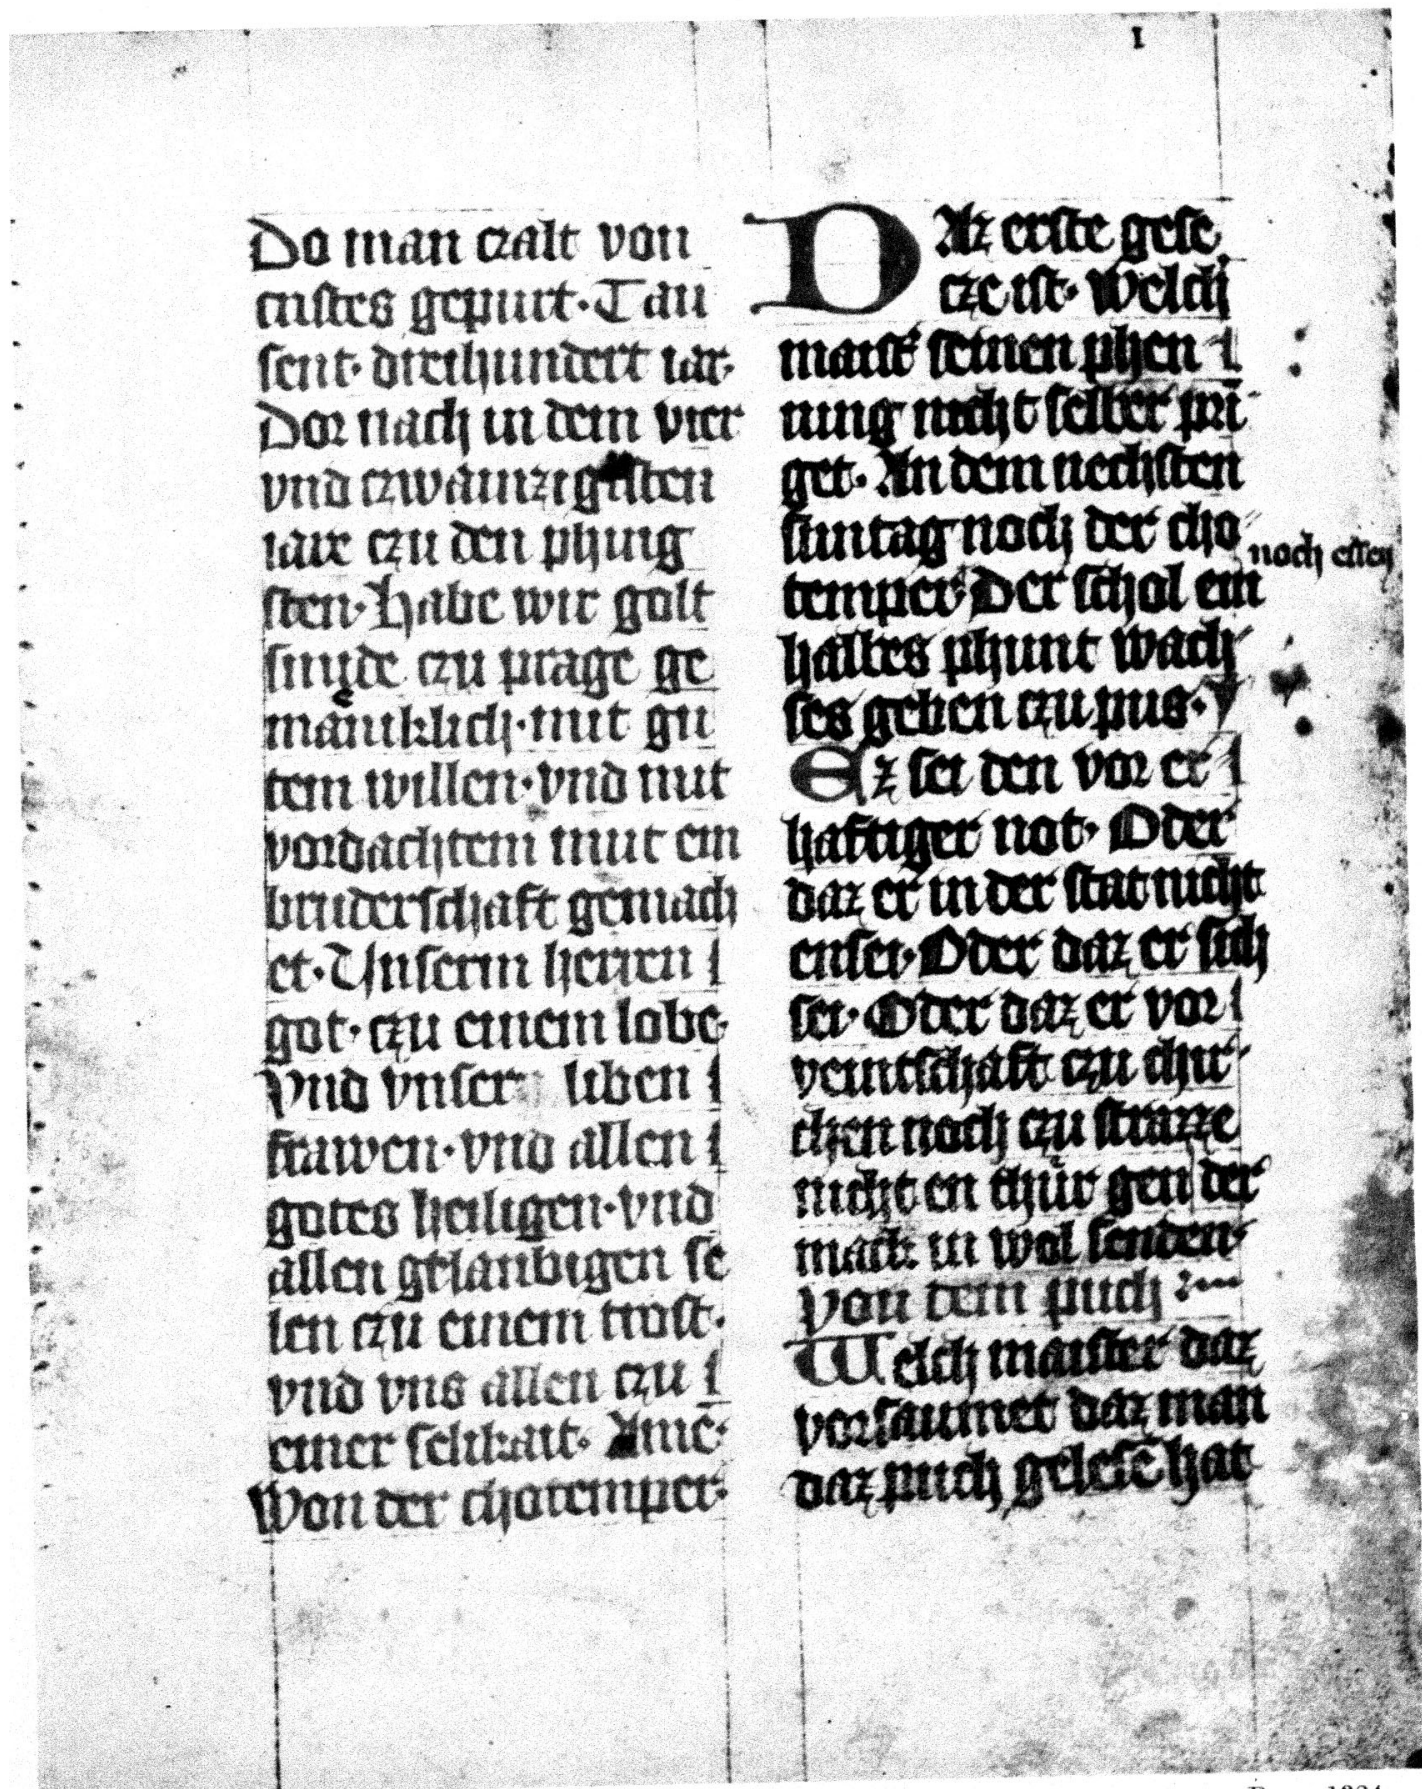 I
Do man czalt von
cristes gepurt· Tau
sent· dreihundert iar·
Dor nach in dem vier
vnd czwainzigisten
iare czu den phing
sten· Habe wir golt
smide czu prage ge
mainklich· mit gu
tem willen· vnd mit
vordachtem mut ein
bruderschaft gemach
et· Unserm herren
got· czu einem lobe·
Vnd vnser liben
frawen· vnd allen
gotes heiligen· vnd
allen gelaubigen se
len czu einem trost·
vnd vns allen czu
einer selikait· Amē·
Von der chotemper·
DAz erste gese
cze ist· Welch
maist' seinen phen
ning nicht selber prī
get· An dem nechsten
suntag noch der cho
noch essen
temper Der schol ein
halbes phunt wach
ses geben czu pus·
Ez sei den vor er
haftiger not· Oder
daz er in der stat nicht
ensei· Oder daz er sich
sei· Oder daz er vor
veintschaft czu chir
chen noch czu strazze
nicht en thür gen der
mack in wol senden·
Von dem puch
Welch maister daz
vorsaumet daz man
daz puch gelesē hat